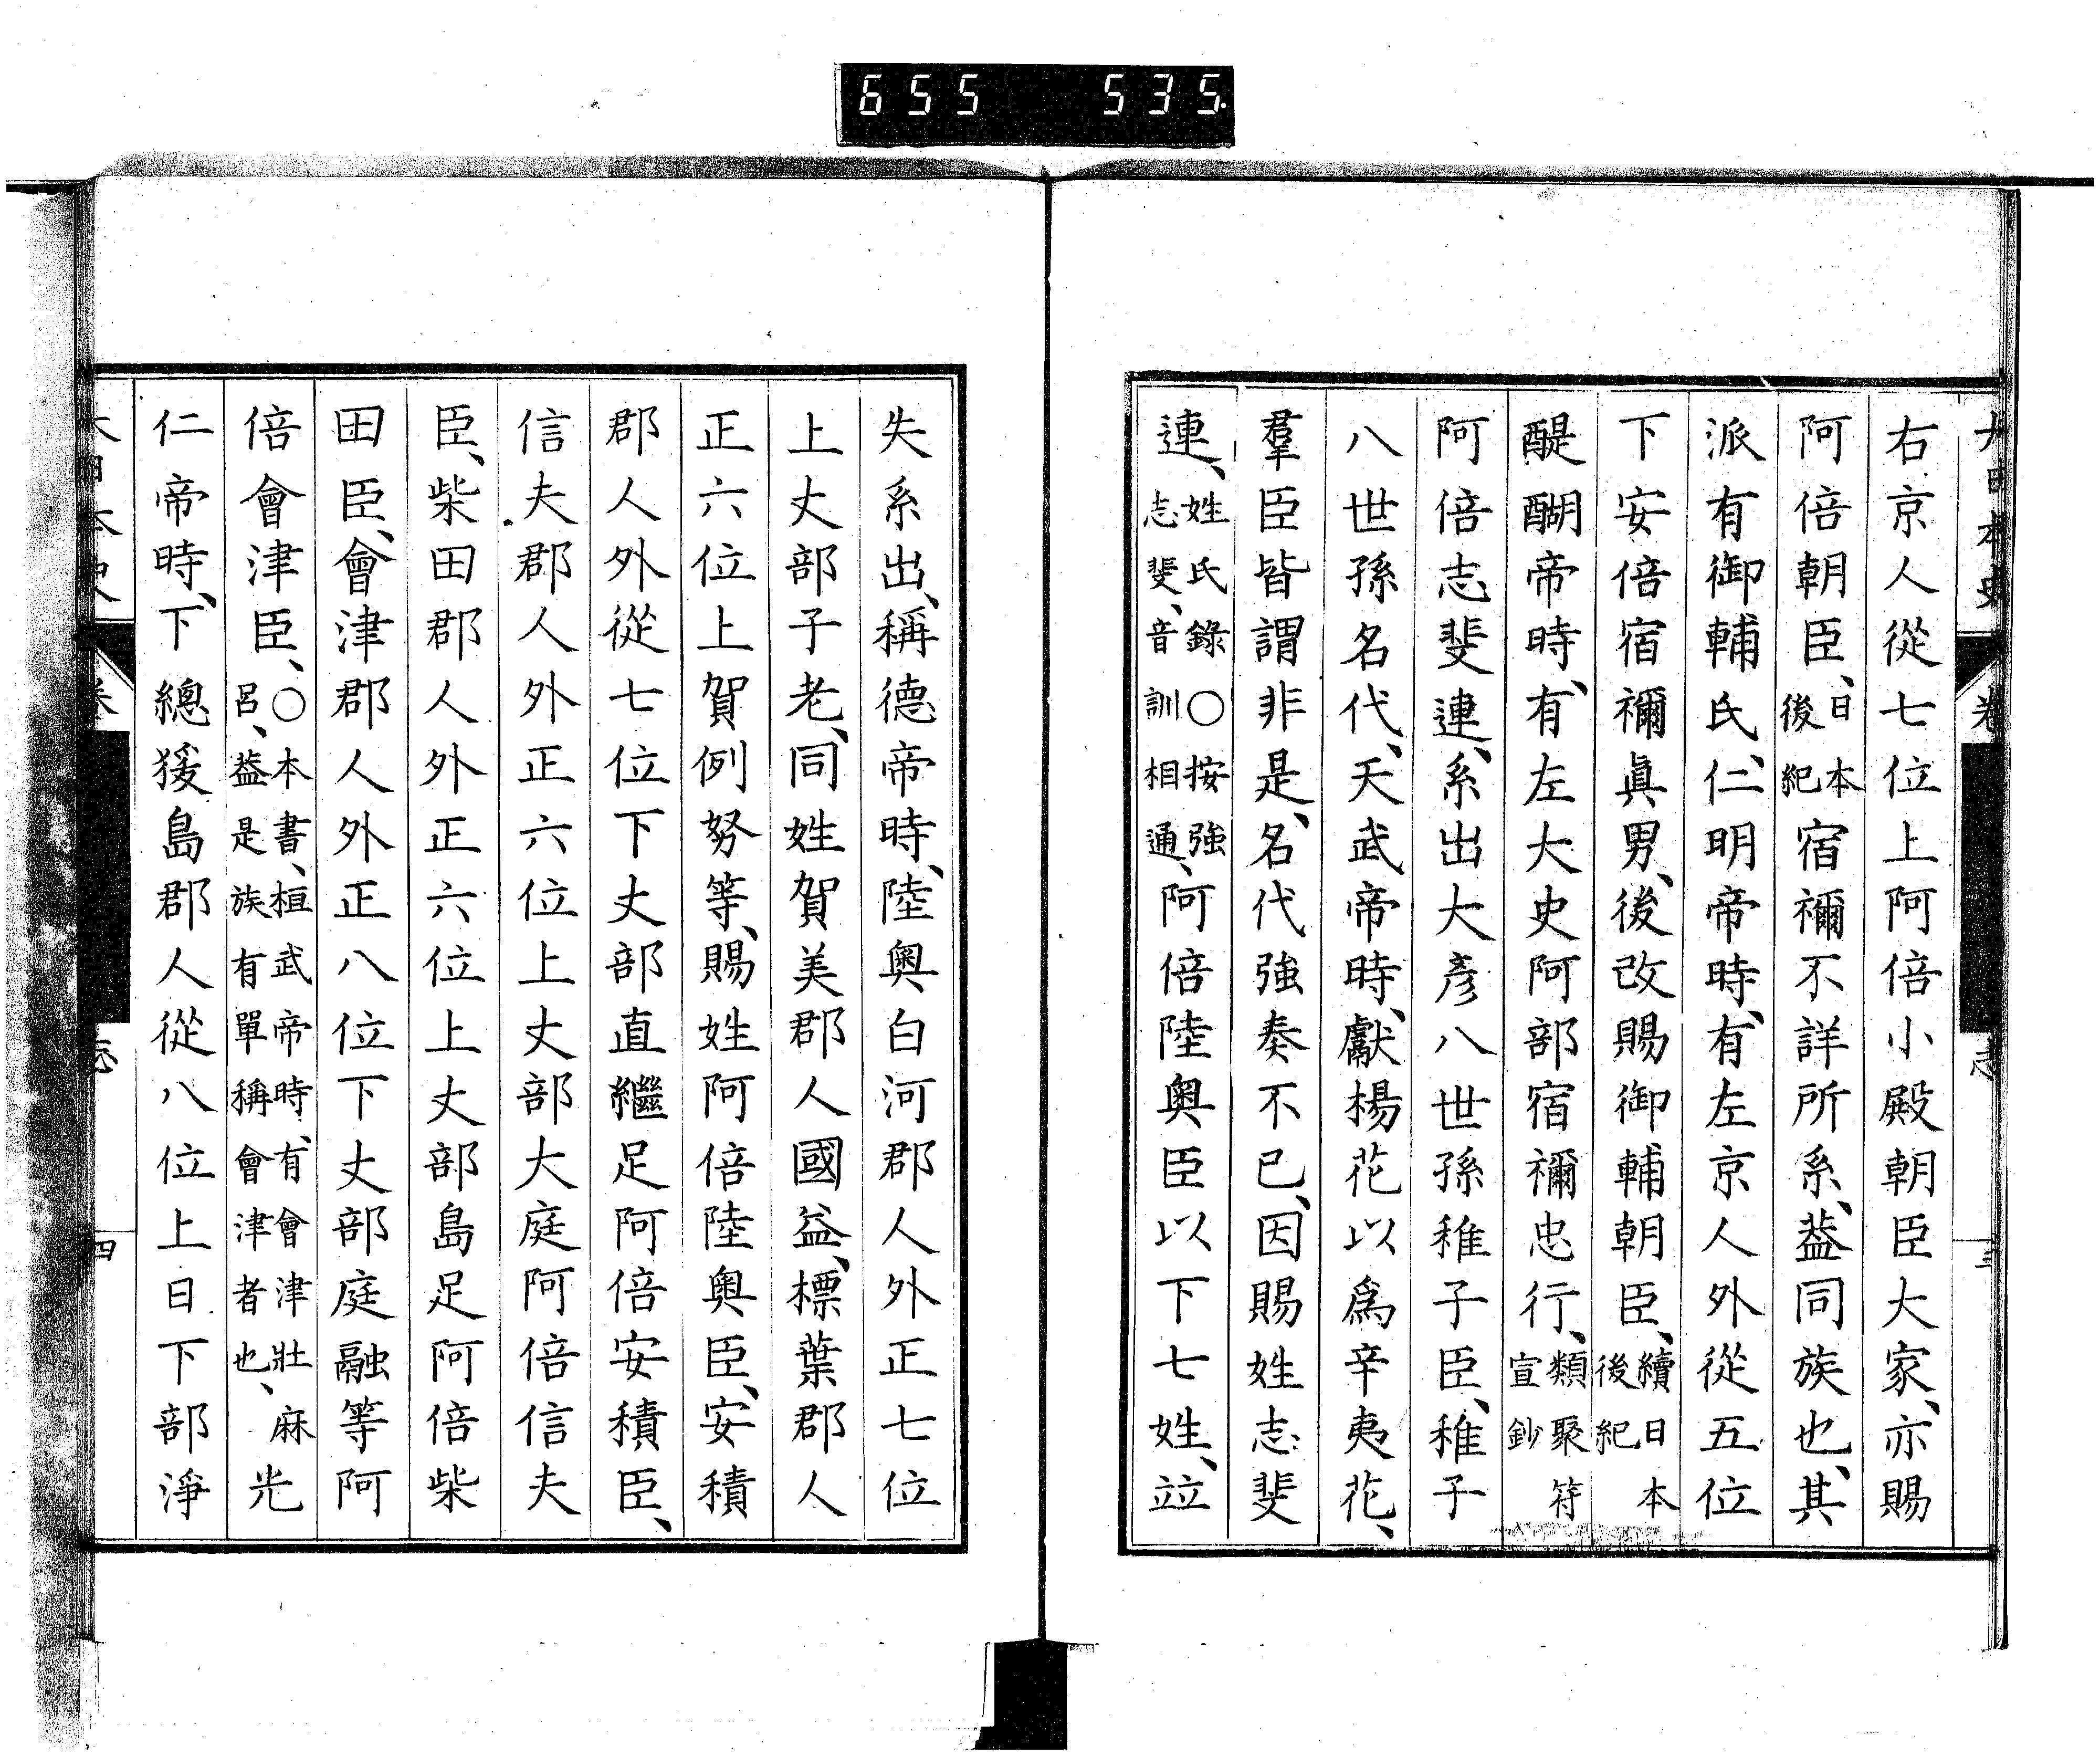 655 535
大日本史 卷 志 三
右京人從七位上阿倍小殿朝臣大家、亦賜
阿倍朝臣、日本後紀宿禰不詳所系、葢同族也、其
派有御輔氏、仁明帝時、有左京人外從五位
下安倍宿禰眞男、後改賜御輔朝臣、續日本後紀
醍醐帝時、有左大史阿部宿禰忠行、類聚符宣鈔
阿倍志斐連、系出大彥八世孫稚子臣、稚子
八世孫名代、天武帝時、獻楊花以爲辛夷花、
羣臣皆謂非是、名代強奏不已、因賜姓志斐
連、姓氏錄〇按強志斐、音訓相通、阿倍陸奧臣以下七姓、竝
失系出、稱德帝時、陸奧白河郡人外正七位
上丈部子老、同姓賀美郡人國益、標葉郡人
正六位上賀例努等、賜姓阿倍陸奧臣、安積
郡人外從七位下丈部直繼足阿倍安積臣、
信夫郡人外正六位上丈部大庭阿倍信夫
臣、柴田郡人外正六位上丈部島足阿倍柴
田臣、會津郡人外正八位下丈部庭融等阿
倍會津臣、〇本書、桓武帝時、有會津壯麻呂、葢是族有單稱會津者也、光
仁帝時、下總猨島郡人從八位上日下部淨
大日本史 卷 志 四